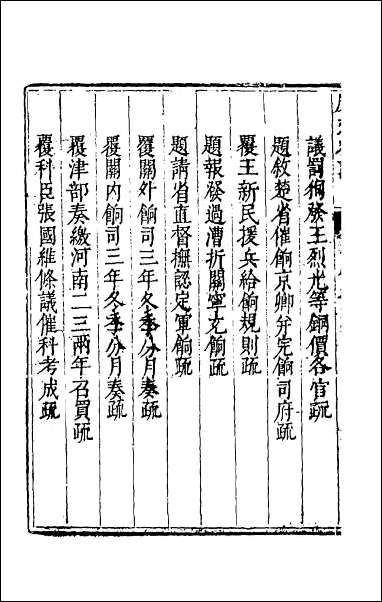 議罰狥發王烈光等銅價各官疏
題敘楚省催餉京卿并完餉司府疏
覆王新民援兵給餉規則疏
題報發過漕折關寧充餉疏
題請省直督撫認定軍餉疏
覆關外餉司三年冬季分月奏疏
覆關內餉司三年冬季分月奏疏
覆津部奏繳河南二三兩年召買疏
覆科臣張國維條議催科考成疏